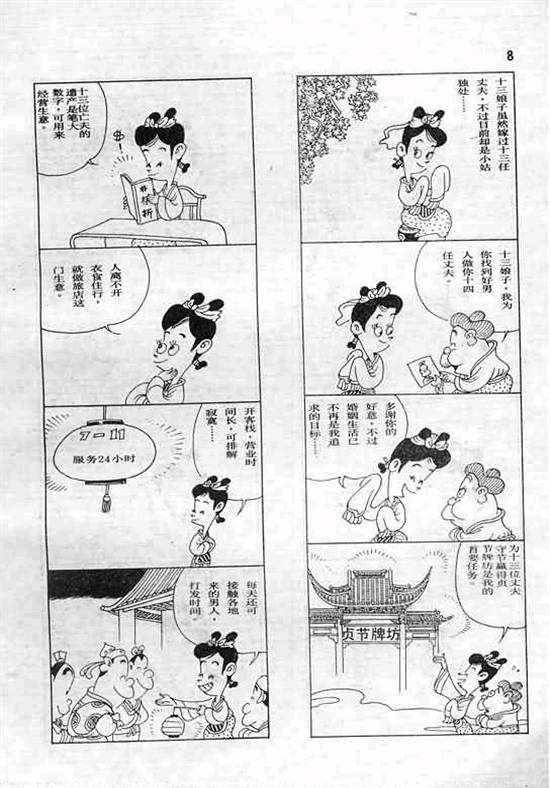 8
十三娘子虽然嫁过十三任
丈夫，不过目前却是小姑
独处……
十三娘子，我为
你找到好男
人做你十四
任丈夫。
多谢你的
好意，不过
婚姻生活已
不再是我追
求的目标……
为十三位丈夫
守节赢得贞
节牌坊是我的
首要任务。
贞节牌坊
十三位亡夫的
遗产是笔大
数字，可用来
经营生意。
$!
人离不开
衣食住行，
就做旅店这
门生意。
开客栈，营业时
间长，可排解
寂寞……
7-11
服务24小时
每天还可
接触各地
来的男人，
打发时间。